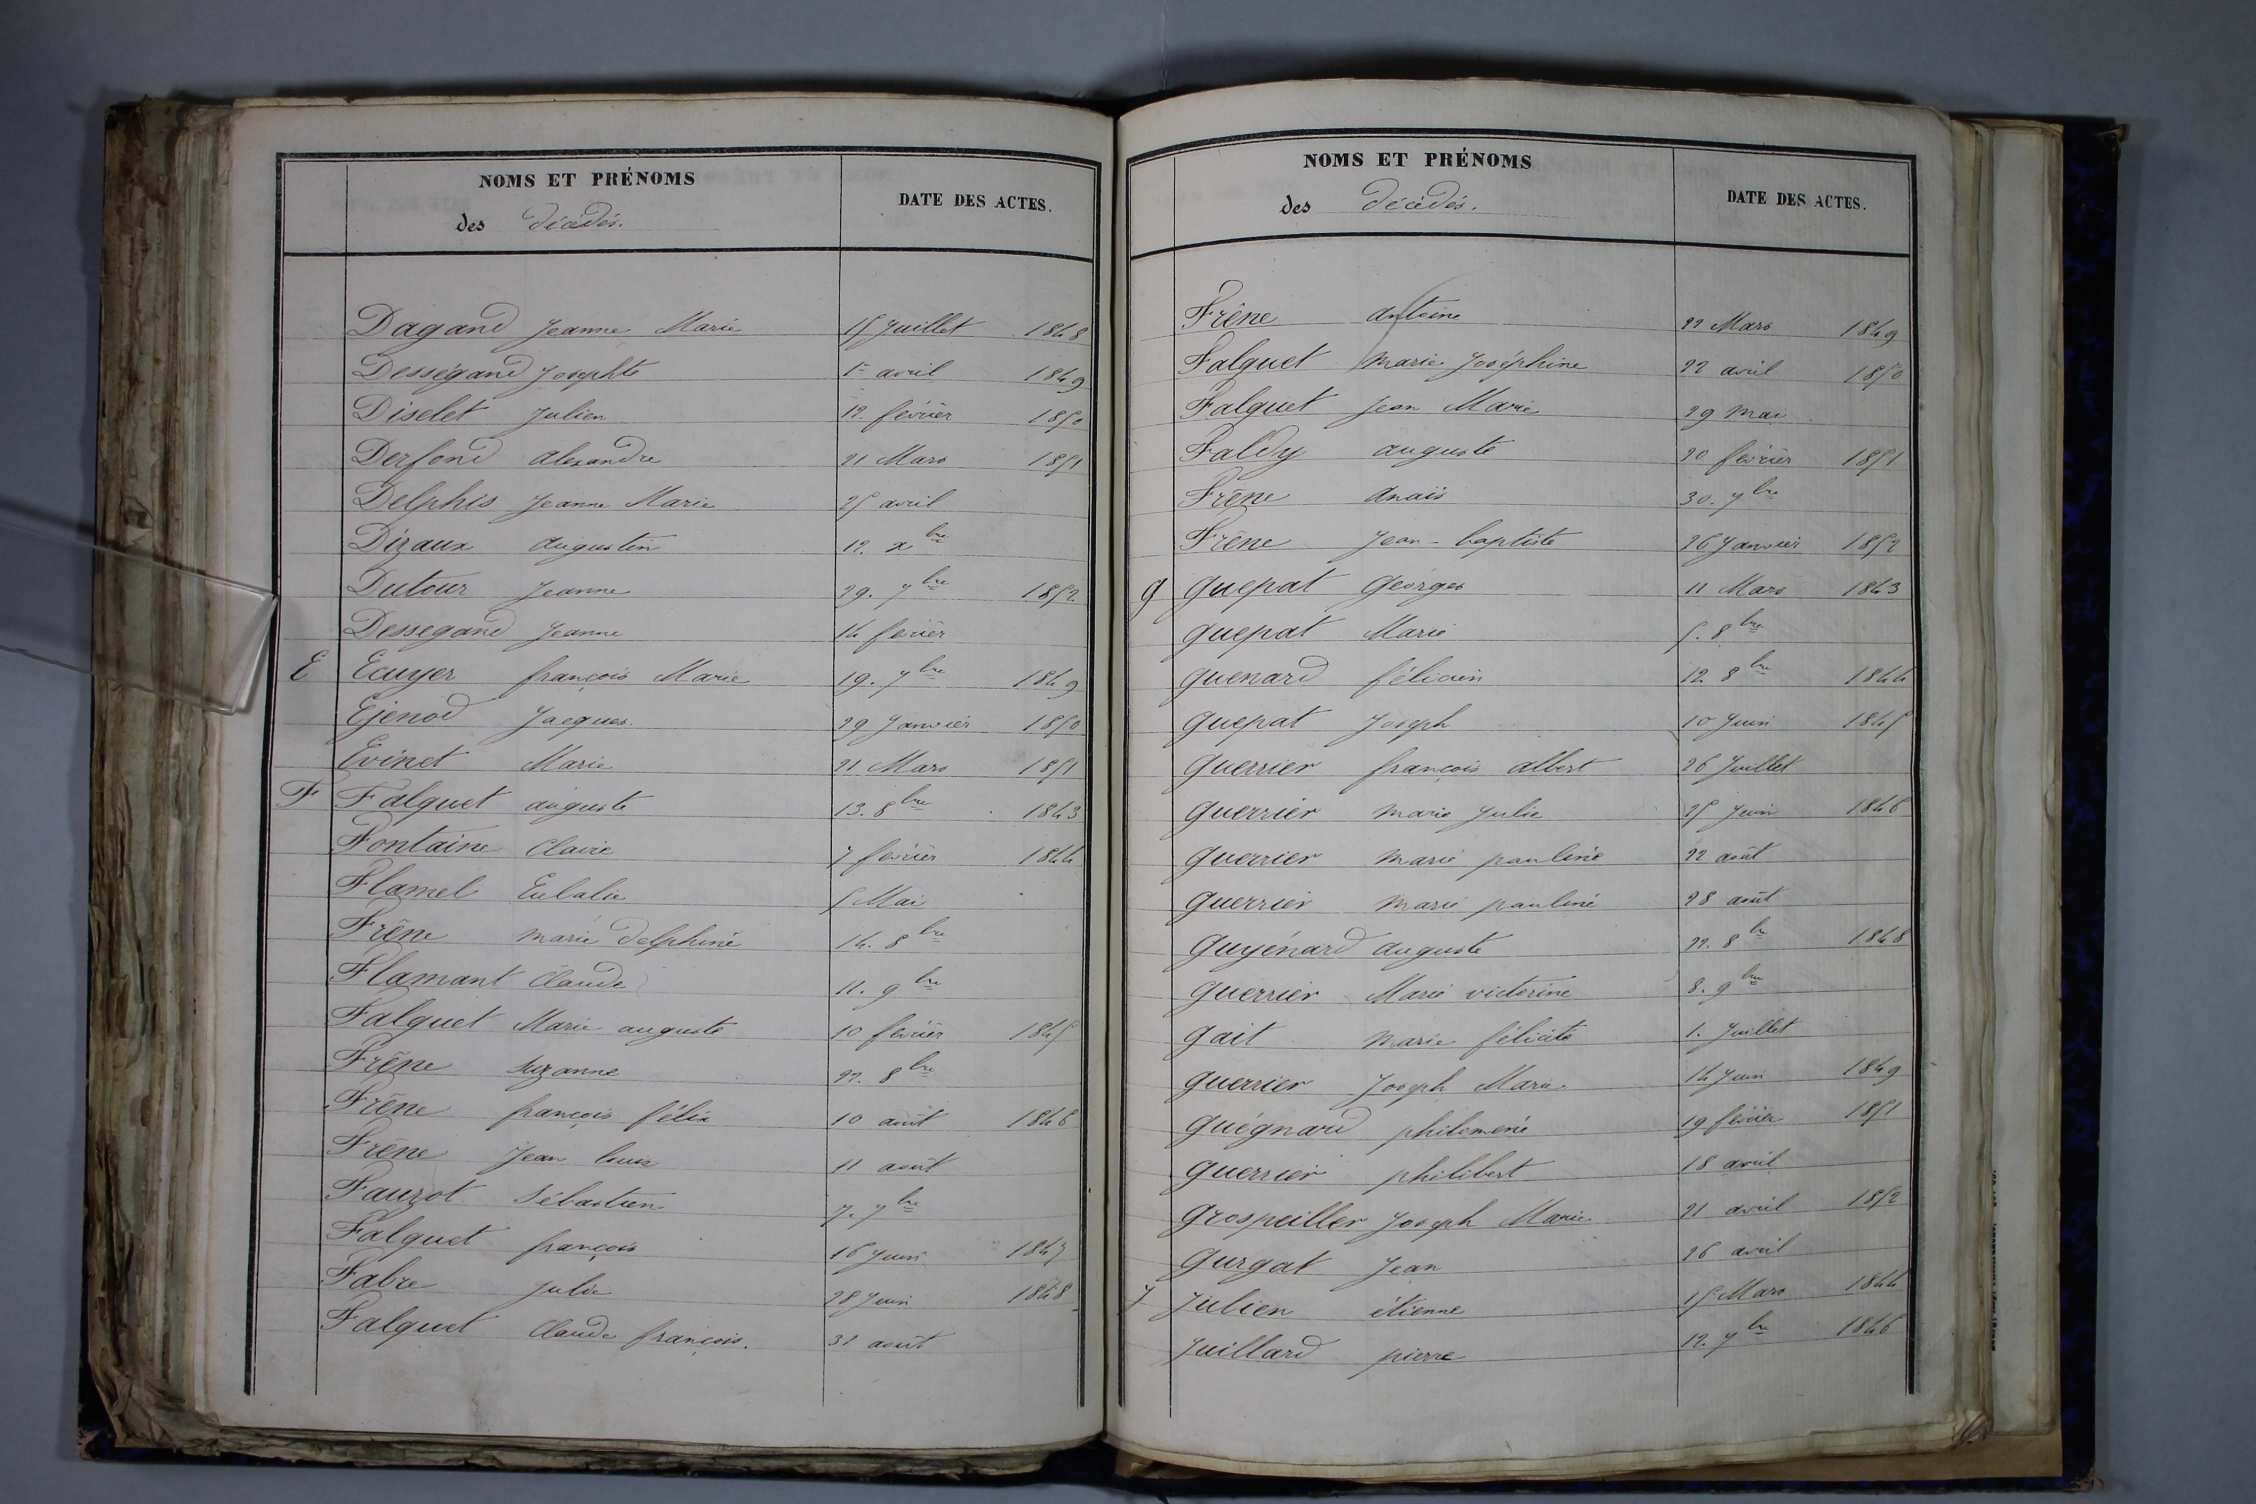 NOMS ET PRÉNOMS
des décédés.
DATE DES ACTES.
Dagand Jeanne Marie 15 Juillet 1848
Dességand Josephte 1er avril 1849
Diselet Julien 12. février 1850
Derfond alexandre 21 Mars 1851
Delphis Jeanne Marie 25 avril
Dizaux augustin 12. xbre
Dutour Jeanne 29. 7bre 1852
Dessegand Jeanne 14 février
E Ecuyer françois Marie 19. 7bre 1849
Ejenod Jacques. 29 Janvier 1850
Evinet Marie 21 Mars 1851
F Falquet auguste 13. 8bre 1843
Fontaine Claire 7 février 1844
Flamel Eulalie 5 Mai
Frêne marie delphine 14. 8bre
Flamant Claude 11. 9bre
Falquet Marie auguste 10 février 1845
Frêne Suzanne 22. 8bre
Frêne françois félix 10 août 1846
Frêne Jean louis 11 août
Fauzot Sébastien 7. 7bre
Falquet françois 16 Juin 1847
Fabre Julie 28 Juin 1848
Falquet Claude françois. 31 août
NOMS ET PRÉNOMS
des décédés.
DATE DES ACTES.
Frêne antoine 22 Mars 1849
Falquet Marie Joséphine 22 avril 1850
Falquet Jean Marie 29 mai
Faldy auguste 20 février 1851
Frêne anaïs 30. 7bre
Frêne Jean-baptiste 26 Janvier 1852
g guepat georges 11 Mars 1843
guepat Marie 5. 8bre
guenard félicien 12. 8bre 1844
guepat Joseph 10 Juin 1845
guerrier françois albert 26 Juillet
guerrier marie Julie 25 Juin 1846
guerrier marie pauline 22 août
guerrier marie pauline 28 août
guyénard auguste 22. 8bre 1848
guerrier Marie victorine 8. 9bre
gait marie félicité 1. Juillet
guerrier Joseph Marie 14 Juin 1849
guégnard philomène 19 février 1851
guerrier philibert 18 avril
grospeiller Joseph Marie 21 avril 1852
gurgat Jean 26 avril
J Julien étienne 15 Mars 1844
Juillard pierre 12. 7bre 1846